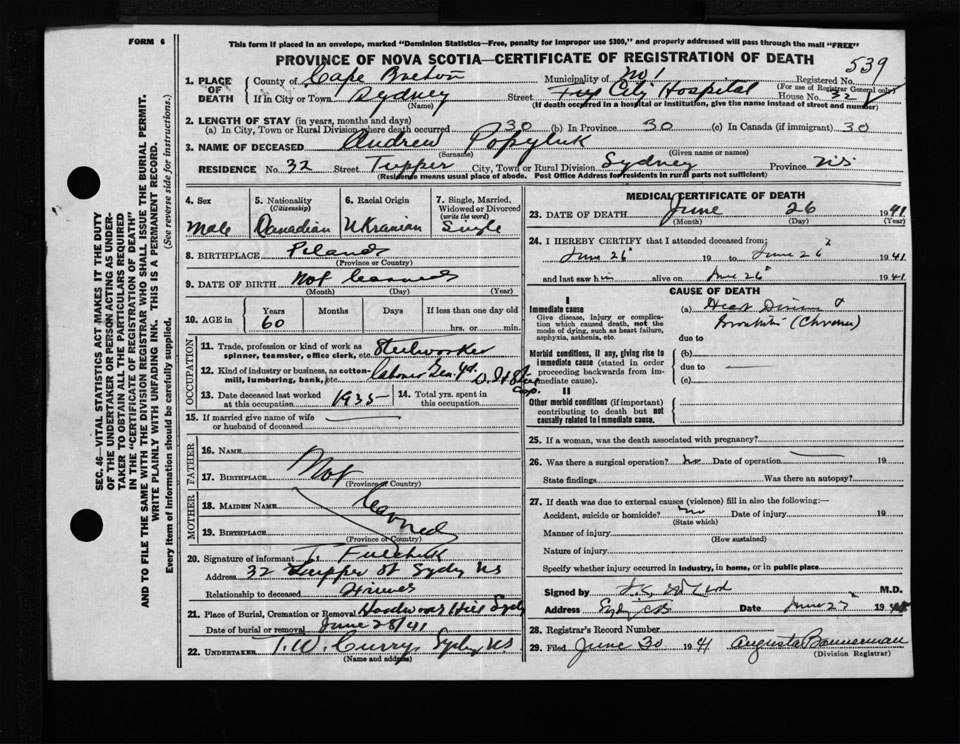 FORM 6
This form if placed in an envelope, marked "Dominion Statistics—Free, penalty for improper use $300," and properly addressed will pass through the mail "FREE"
PROVINCE OF NOVA SCOTIA—CERTIFICATE OF REGISTRATION OF DEATH
539
1. PLACE OF DEATH
County of Cape Breton Municipality of No 1 Registered No.
(For use of Registrar General only)
If in City or Town Sydney Street City Hospital House No. 32
(Name) (If death occurred in a hospital or institution, give the name instead of street and number)
2. LENGTH OF STAY (in years, months and days)
(a) In City, Town or Rural Division where death occurred 30 (b) In Province 30 (c) In Canada (if immigrant) 30
3. NAME OF DECEASED Andrew Popyluk
(Surname) (Given name or names)
RESIDENCE No. 32 Street Tupper City, Town or Rural Division Sydney Province NS
(Residence means usual place of abode. Post Office Address for residents in rural parts not sufficient)
4. Sex Male
5. Nationality (Citizenship) Canadian
6. Racial Origin Ukranian
7. Single, Married, Widowed or Divorced (write the word) Single
8. BIRTHPLACE Poland
(Province or Country)
9. DATE OF BIRTH Not learned
(Month) (Day) (Year)
10. AGE in Years Months Days If less than one day old
60 hrs. or min.
OCCUPATION
11. Trade, profession or kind of work as spinner, teamster, office clerk, etc. Steelworker
12. Kind of industry or business, as cotton-mill, lumbering, bank, etc. labourer
13. Date deceased last worked at this occupation 1935
14. Total yrs. spent in this occupation
15. If married give name of wife or husband of deceased
FATHER
16. NAME
17. BIRTHPLACE Not
(Province or Country)
MOTHER
18. MAIDEN NAME Learned
19. BIRTHPLACE
(Province or Country)
20. Signature of informant
Address 32 Tupper St Sydney NS
Relationship to deceased Friend
21. Place of Burial, Cremation or Removal Hardwood Hill Sydney
Date of burial or removal June 28/41
22. UNDERTAKER T. W. Curry, Sydney NS
(Name and address)
MEDICAL CERTIFICATE OF DEATH
23. DATE OF DEATH June 26 1941
(Month) (Day)
24. I HEREBY CERTIFY that I attended deceased from;
June 26 19 to June 26 1941
and last saw him alive on June 26 1941
CAUSE OF DEATH
I
Immediate cause
Give disease, injury or complication which caused death, not the mode of dying, such as heart failure, asphyxia, asthenia, etc.
(a) Heart Disease &
Bronchitis (Chronic)
due to
Morbid conditions, if any, giving rise to immediate cause (stated in order proceeding backwards from immediate cause).
(b)
due to
(c)
II
Other morbid conditions (if important) contributing to death but not causally related to immediate cause.
25. If a woman, was the death associated with pregnancy?
26. Was there a surgical operation? no Date of operation 19
State findings Was there an autopsy?
27. If death was due to external causes (violence) fill in also the following:—
Accident, suicide or homicide? no Date of injury 19
(State which)
Manner of injury
(How sustained)
Nature of injury
Specify whether injury occurred in industry, in home, or in public place
Signed by M.D.
Address Sydney CB Date June 27 1941
28. Registrar's Record Number
29. Filed June 30 1941 Augusta Bannerman
(Division Registrar)
SEC. 46—VITAL STATISTICS ACT MAKES IT THE DUTY
OF THE UNDERTAKER OR PERSON ACTING AS UNDER-
TAKER TO OBTAIN ALL THE PARTICULARS REQUIRED
IN THE "CERTIFICATE OF REGISTRATION OF DEATH"
AND TO FILE THE SAME WITH THE DIVISION REGISTRAR WHO SHALL ISSUE THE BURIAL PERMIT.
WRITE PLAINLY WITH UNFADING INK. THIS IS A PERMANENT RECORD.
Every item of Information should be carefully supplied. (See reverse side for instructions.)